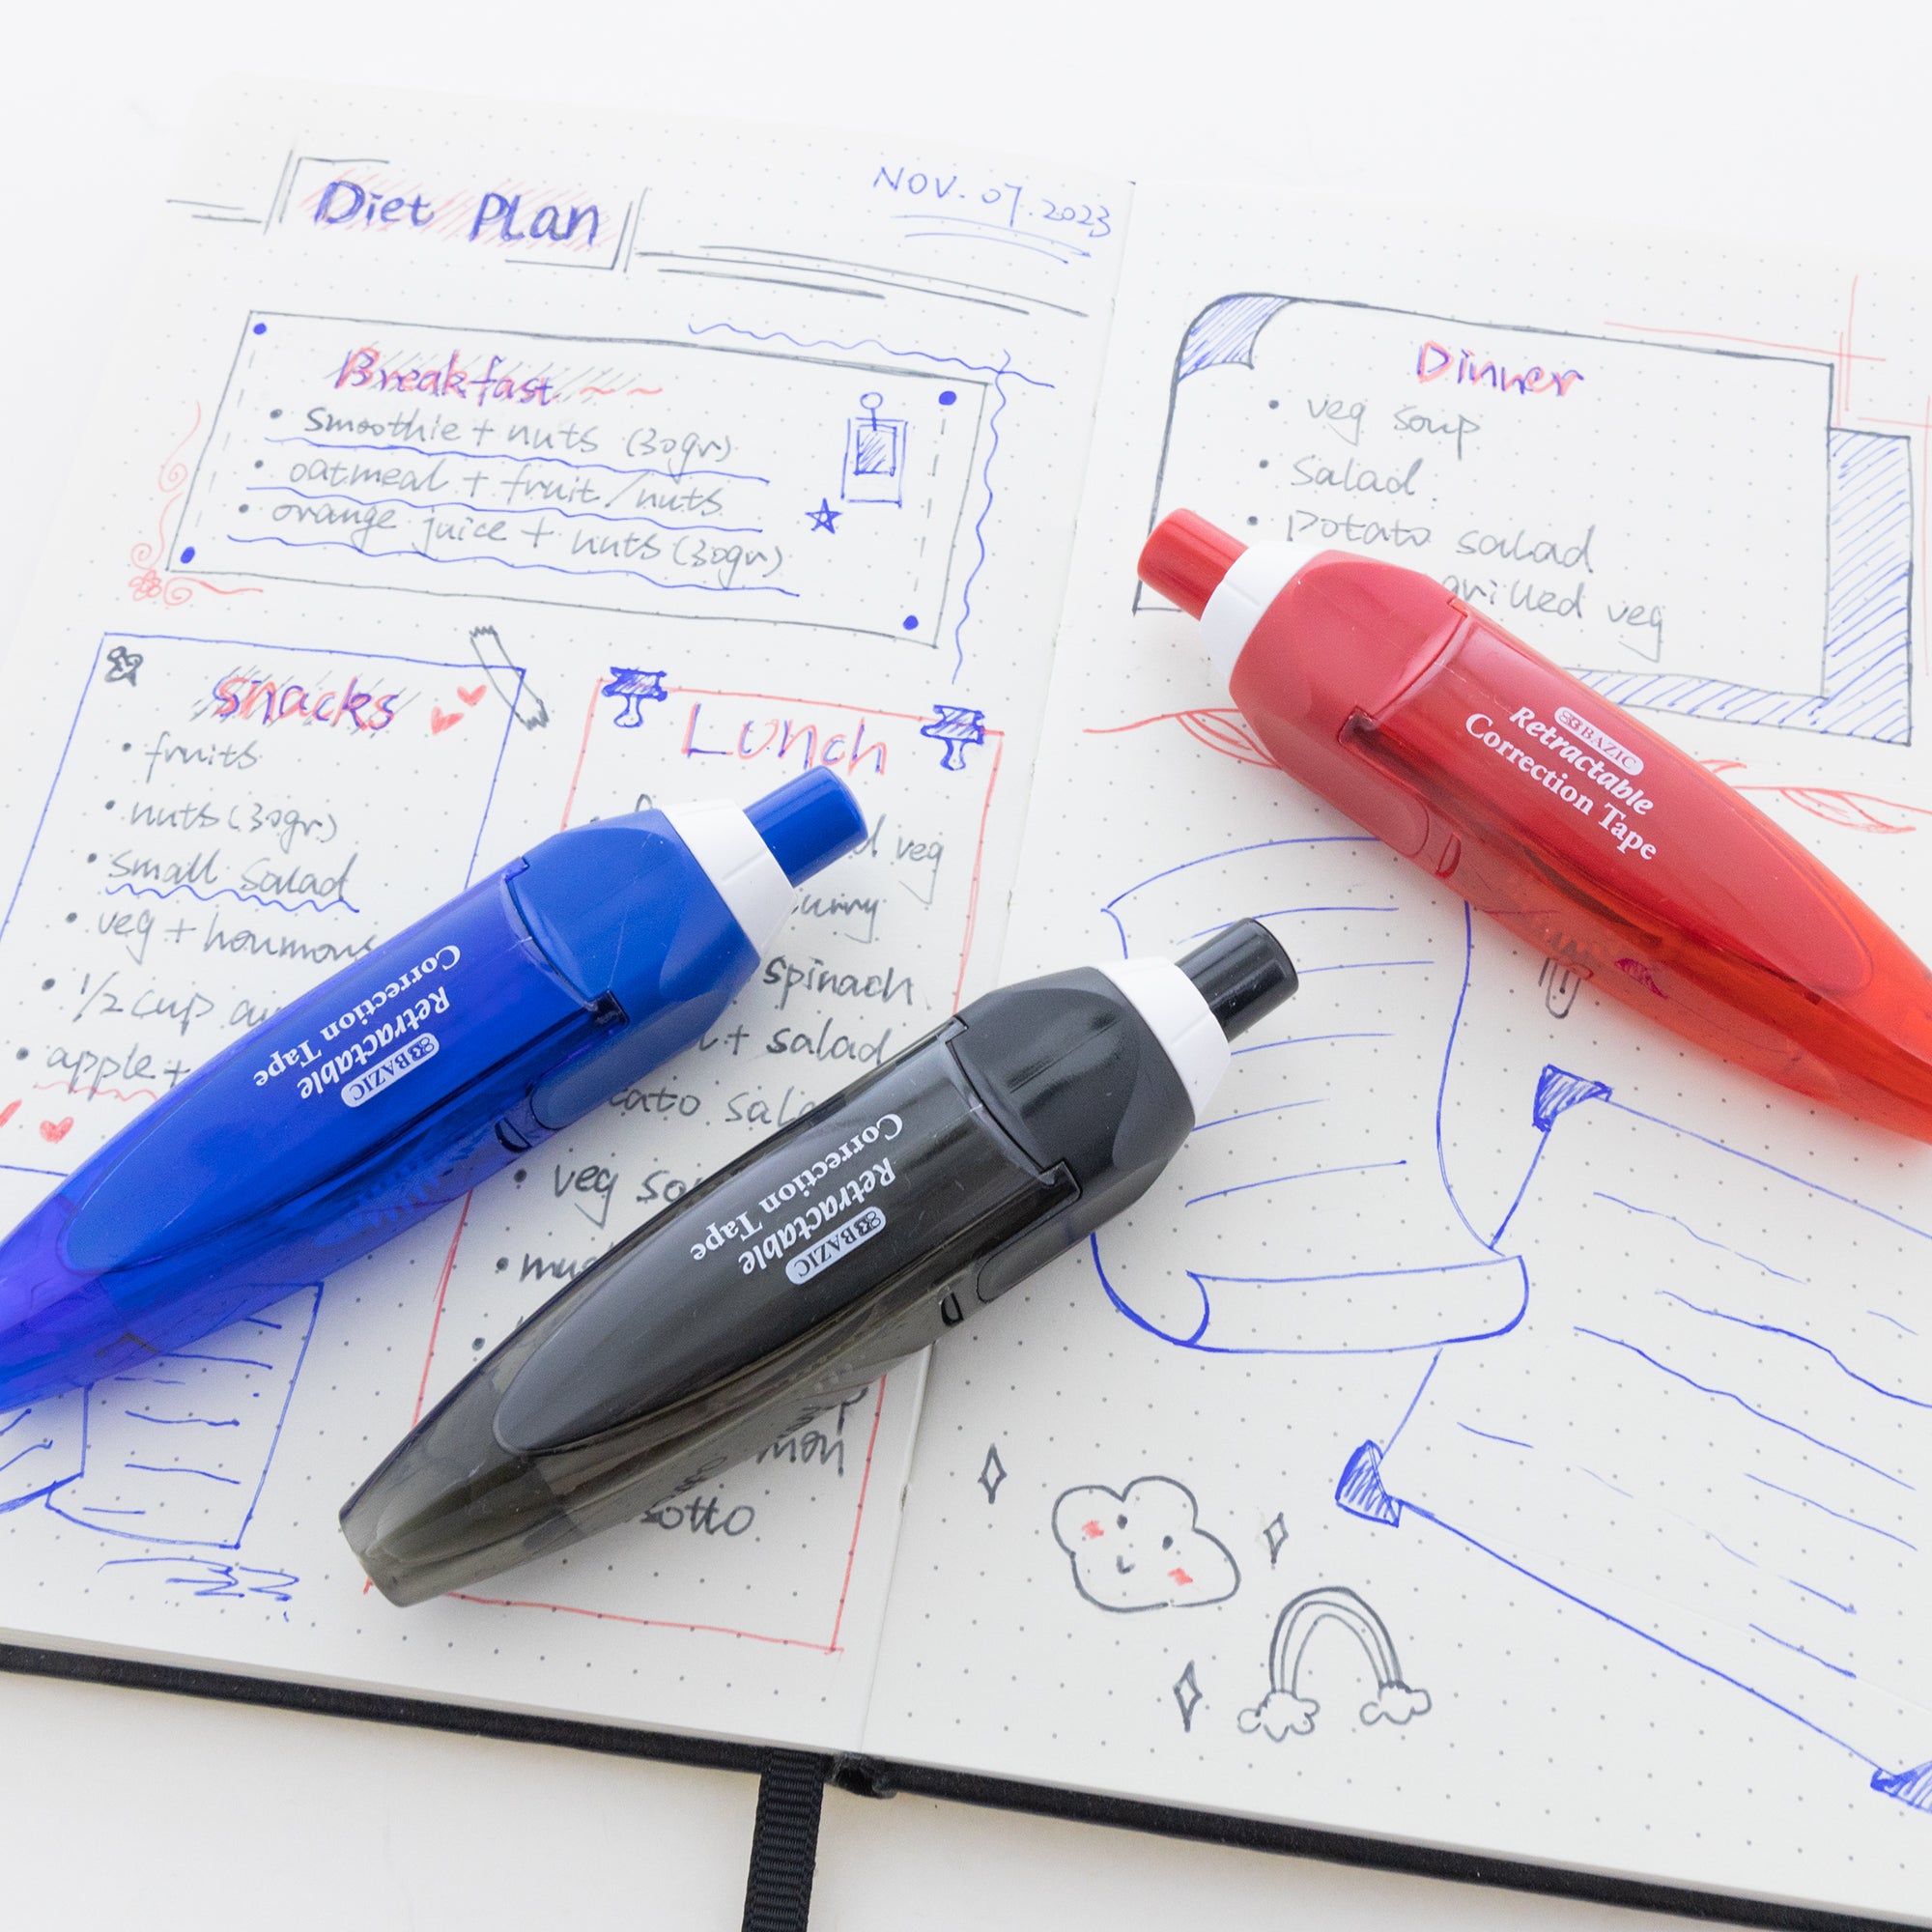 Diet Plan
NOV. 07. 2023
Breakfast
• smoothie + nuts (30gr)
• oatmeal + fruit/nuts
• orange juice + nuts (30gr)
snacks
• fruits
• nuts (30gr)
• small salad
• veg + houmous
• 1/2 cup
• apple +
Lunch
veg
spinach
+ salad
• veg
•
sotto
Dinner
• veg soup
• salad
• potato salad
grilled veg
BAZIC
Retractable
Correction Tape
BAZIC
Retractable
Correction Tape
BAZIC
Retractable
Correction Tape